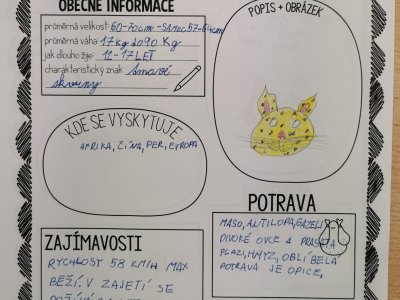 OBECNÉ INFORMACE
průměrná velikost: 60-70cm - SAMEC 57-64cm
průměrná váha: 17 kg do 90 Kg
jak dlouho žije: 12-17 LET
charakteristický znak: tmavé
skvrny
POPIS + OBRÁZEK
KDE SE VYSKYTUJE
AFRIKA, ČÍNA, PER, EVROPA
ZAJÍMAVOSTI
RYCHLOST 58 KM/H MAX
BĚŽÍ. V ZAJETÍ SE
POTRAVA
MASO, ANTILOPA, GAZELI
DIVOKÉ OVCE A PRASATA
PLAZI, HMYZ, OBLÍBELÁ
POTRAVA JE OPICE,